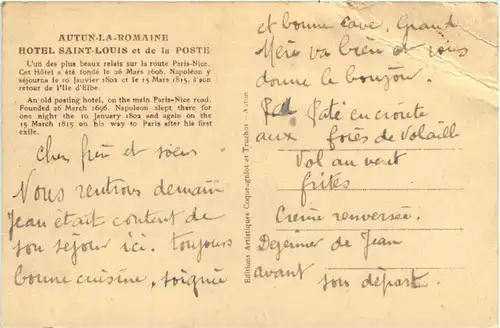 AUTUN-LA-ROMAINE
HOTEL SAINT-LOUIS et de la POSTE
L'un des plus beaux relais sur la route Paris-Nice.
Cet Hôtel a été fondé le 26 Mars 1696. Napoléon y
séjourna le 10 Janvier 1802 et le 15 Mars 1815, à son
retour de l'Ile d'Elbe.
An old posting hotel, on the main Paris-Nice road.
Founded 26 March 1696. Napoleon slept there for
one night the 10 January 1802 and again on the
15 March 1815 on his way to Paris after his first
exile.
Cher frère et soeur
Nous rentrons demain
Jean était content de
son séjour ici. toujours
bonne cuisine, soignée
Editions Artistiques Coqueugniot et Truchot - Autun
et bonne cave. Grand
Mère va bien et vous
donne le bonjour.
Pâté en croute
aux foies de Volaille
Vol au vent
frites
Crème renversée.
Dejeuner de Jean
avant son départ.